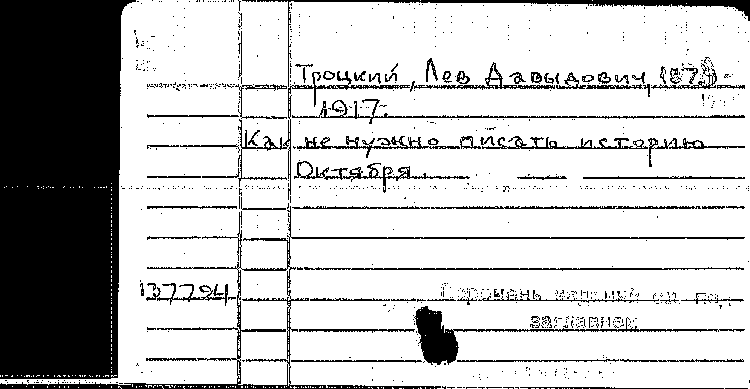 Троцкий, Лев Давыдович, 1879-
1917.
Как не нужно писать историю
Октября.
137794
по
заглавием